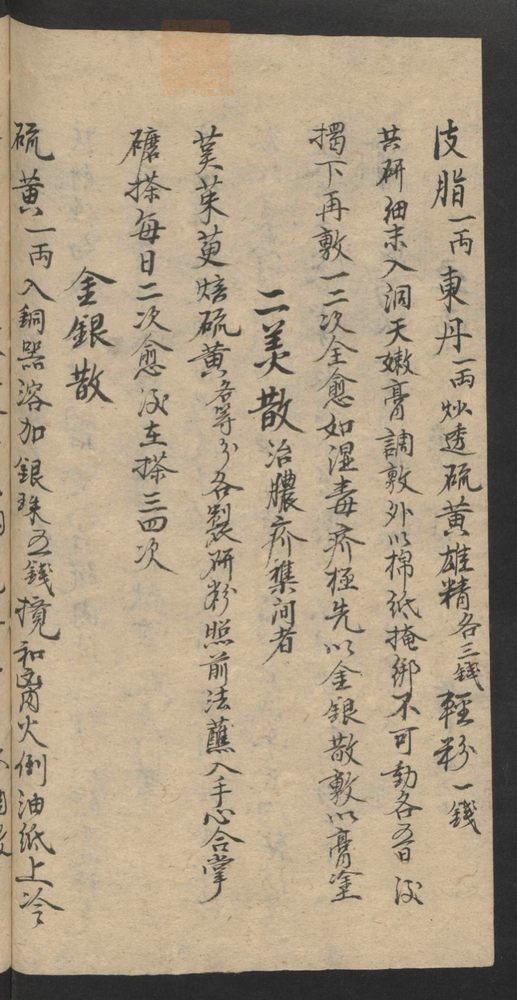 皮脂一両東丹一両炒透硫黄雄精各三錢輕粉一錢
共研细末入洞天嫩膏調敷外以棉紙掩绑不可動各五日後
揭下再敷一二次全愈如湿毒疥極先以金銀散敷以膏塗
二美散治膿疥集间者
茱萸焙硫黄各等分各製研粉照前法蘸入手心合掌
磨搽每日二次愈後在搽三四次
金銀散
硫黄一両入銅器溶加銀珠五錢攪和离火倒油紙上冷